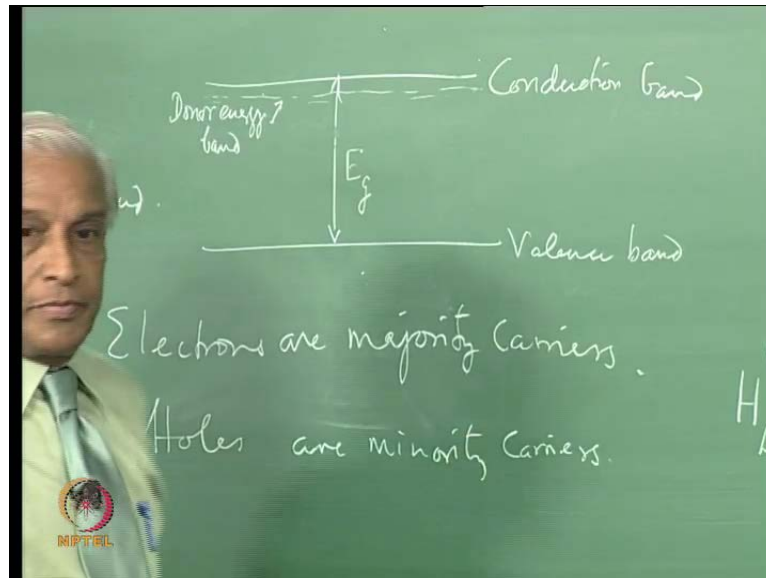 Conduction band
Donor energy
band
Eg
Valence band
Electrons are majority Carriers.
Holes are minority Carriers.
H
NPTEL